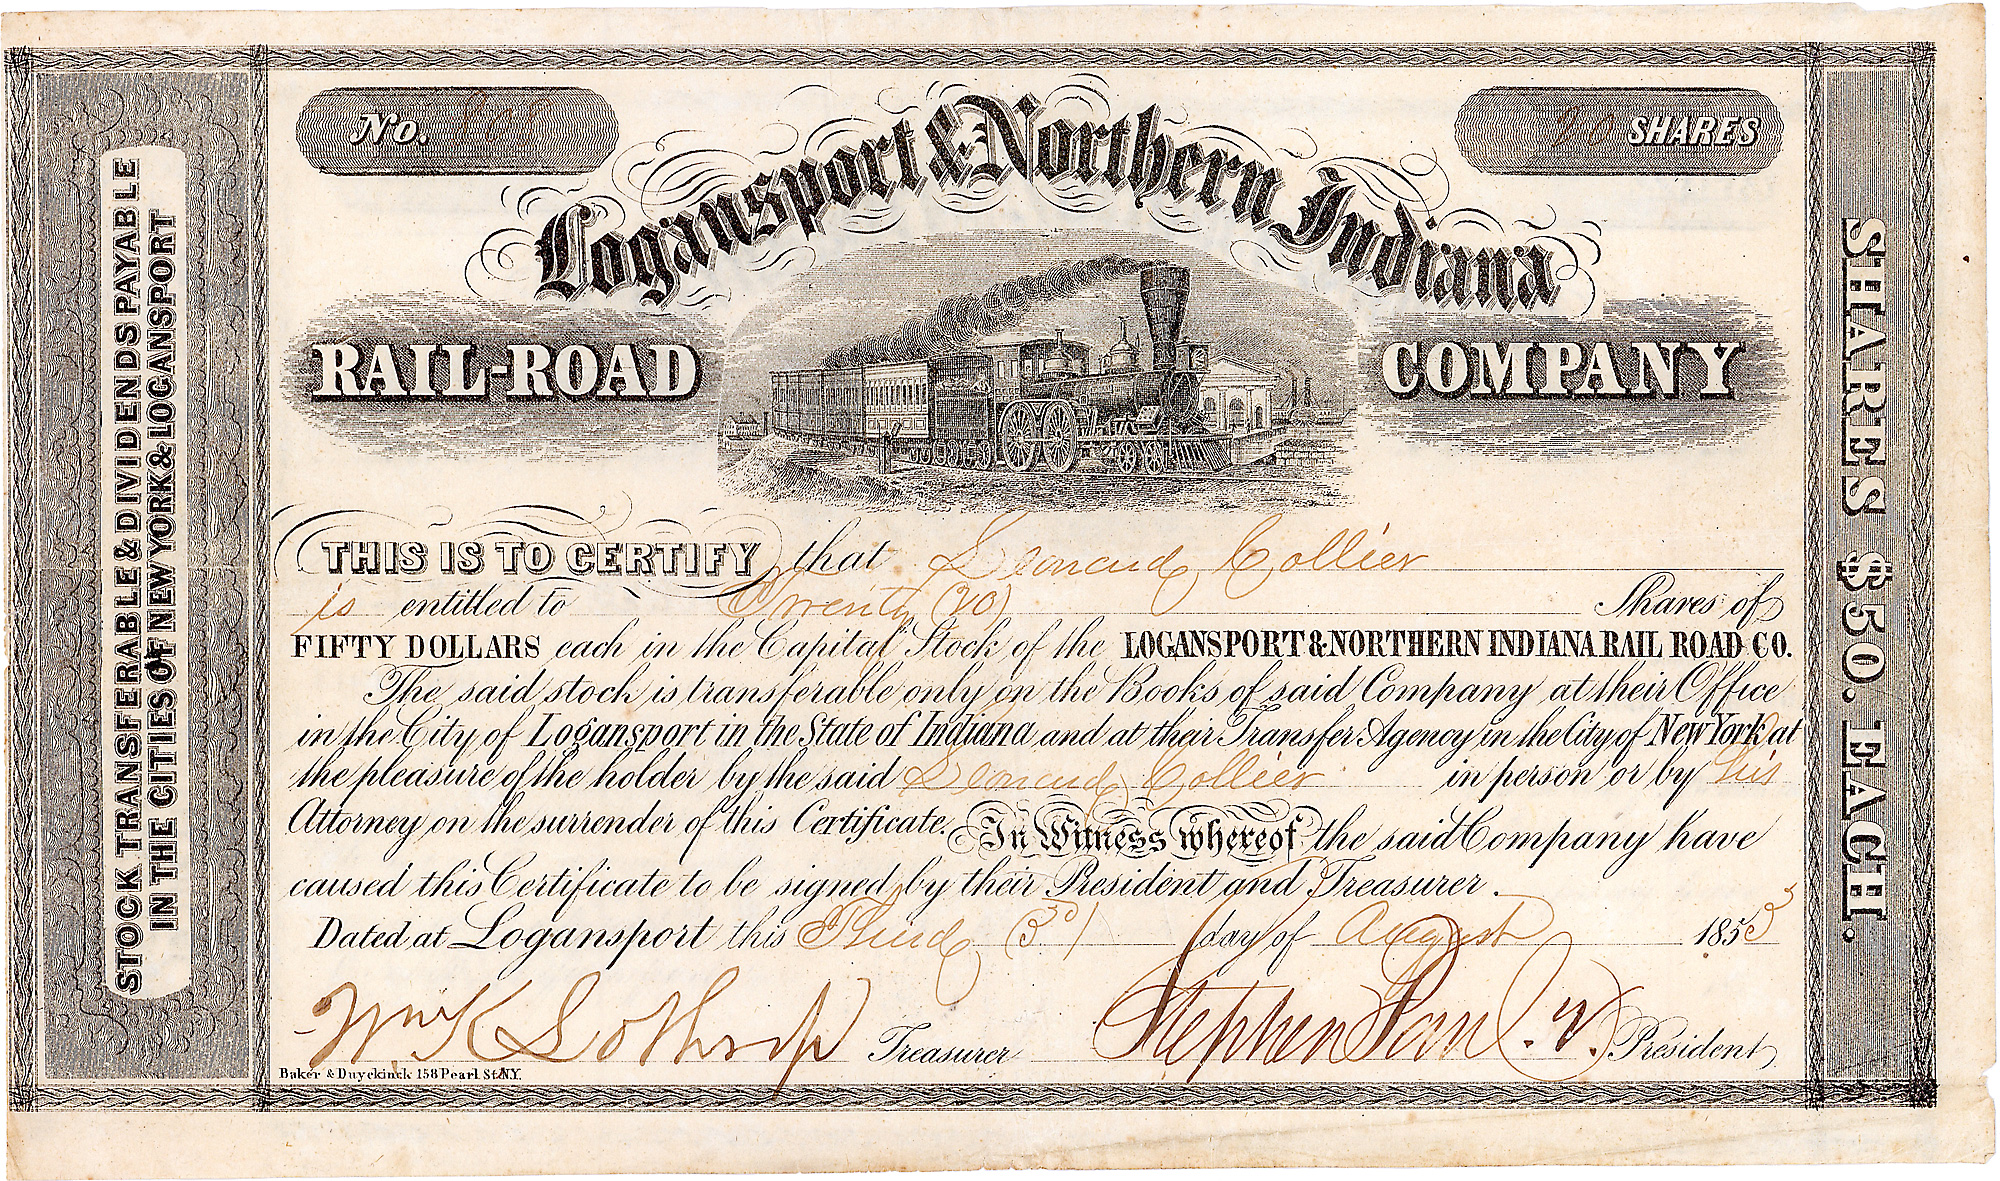 No.
20 SHARES
Logansport & Northern Indiana
RAIL-ROAD COMPANY
STOCK TRANSFERABLE & DIVIDENDS PAYABLE
IN THE CITIES OF NEW YORK & LOGANSPORT
THIS IS TO CERTIFY that Leonard Collier
is entitled to Twenty (20) Shares of
FIFTY DOLLARS each in the Capital Stock of the LOGANSPORT & NORTHERN INDIANA RAIL ROAD CO.
The said stock is transferable only on the Books of said Company at their Office
in the City of Logansport in the State of Indiana and at their Transfer Agency in the City of New York at
the pleasure of the holder by the said Leonard Collier in person or by his
Attorney on the surrender of this Certificate. In Witness whereof the said Company have
caused this Certificate to be signed by their President and Treasurer.
Dated at Logansport this Third (3d) day of August 1853
Treasurer Stephen President
Baker & Duyckinck 158 Pearl St. N.Y.
SHARES $50. EACH.